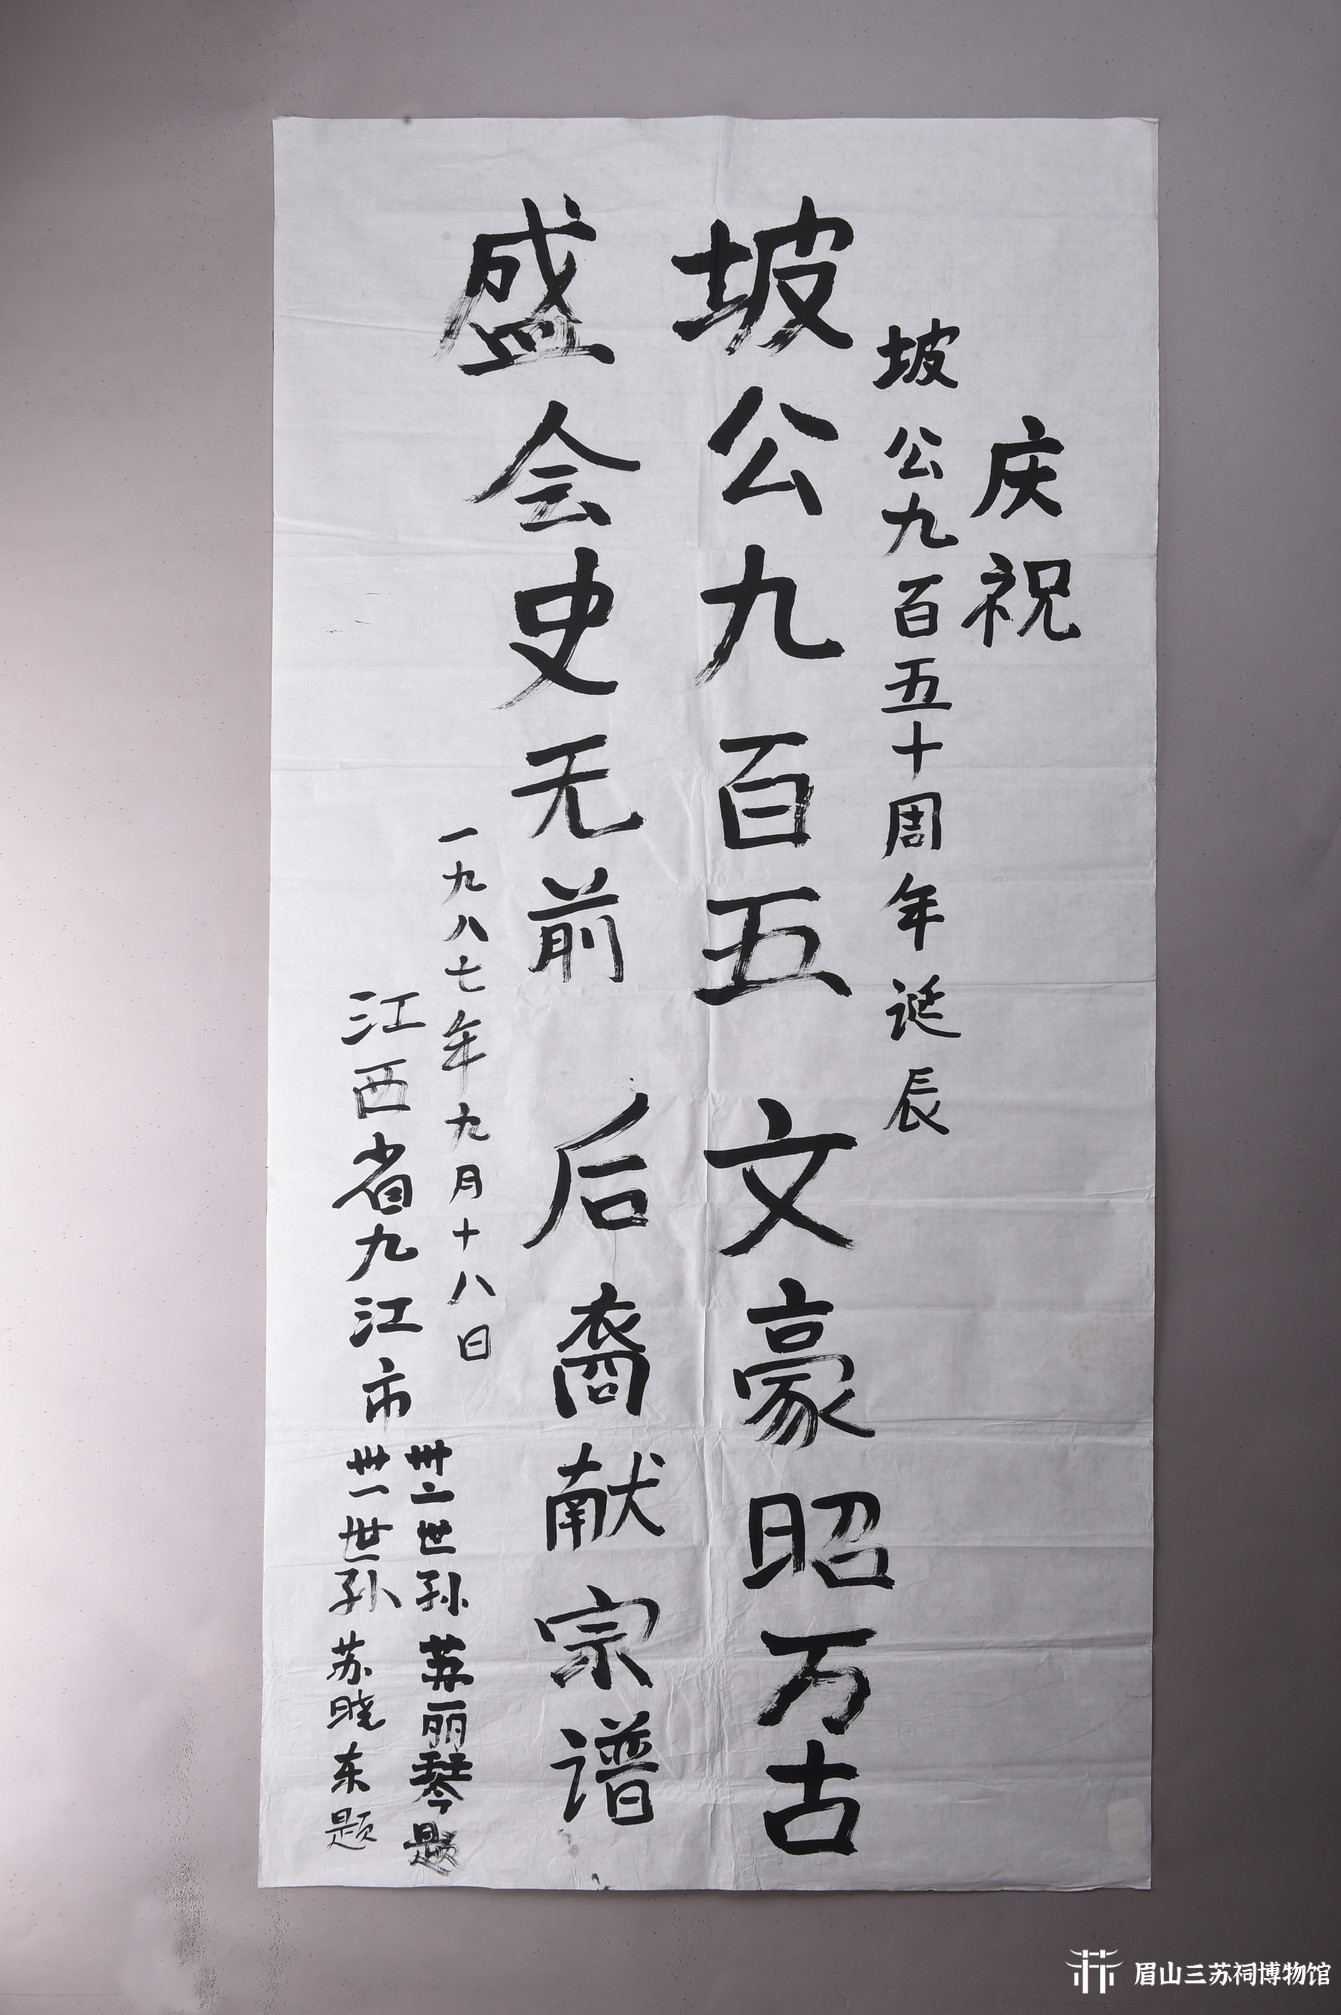 庆祝
坡公九百五十周年诞辰
坡公九百五 文豪昭万古
盛会史无前 后裔献宗谱
一九八七年九月十八日
江西省九江市
卅二世孙 苏丽琴题
卅一世孙 苏晓东题
眉山三苏祠博物馆